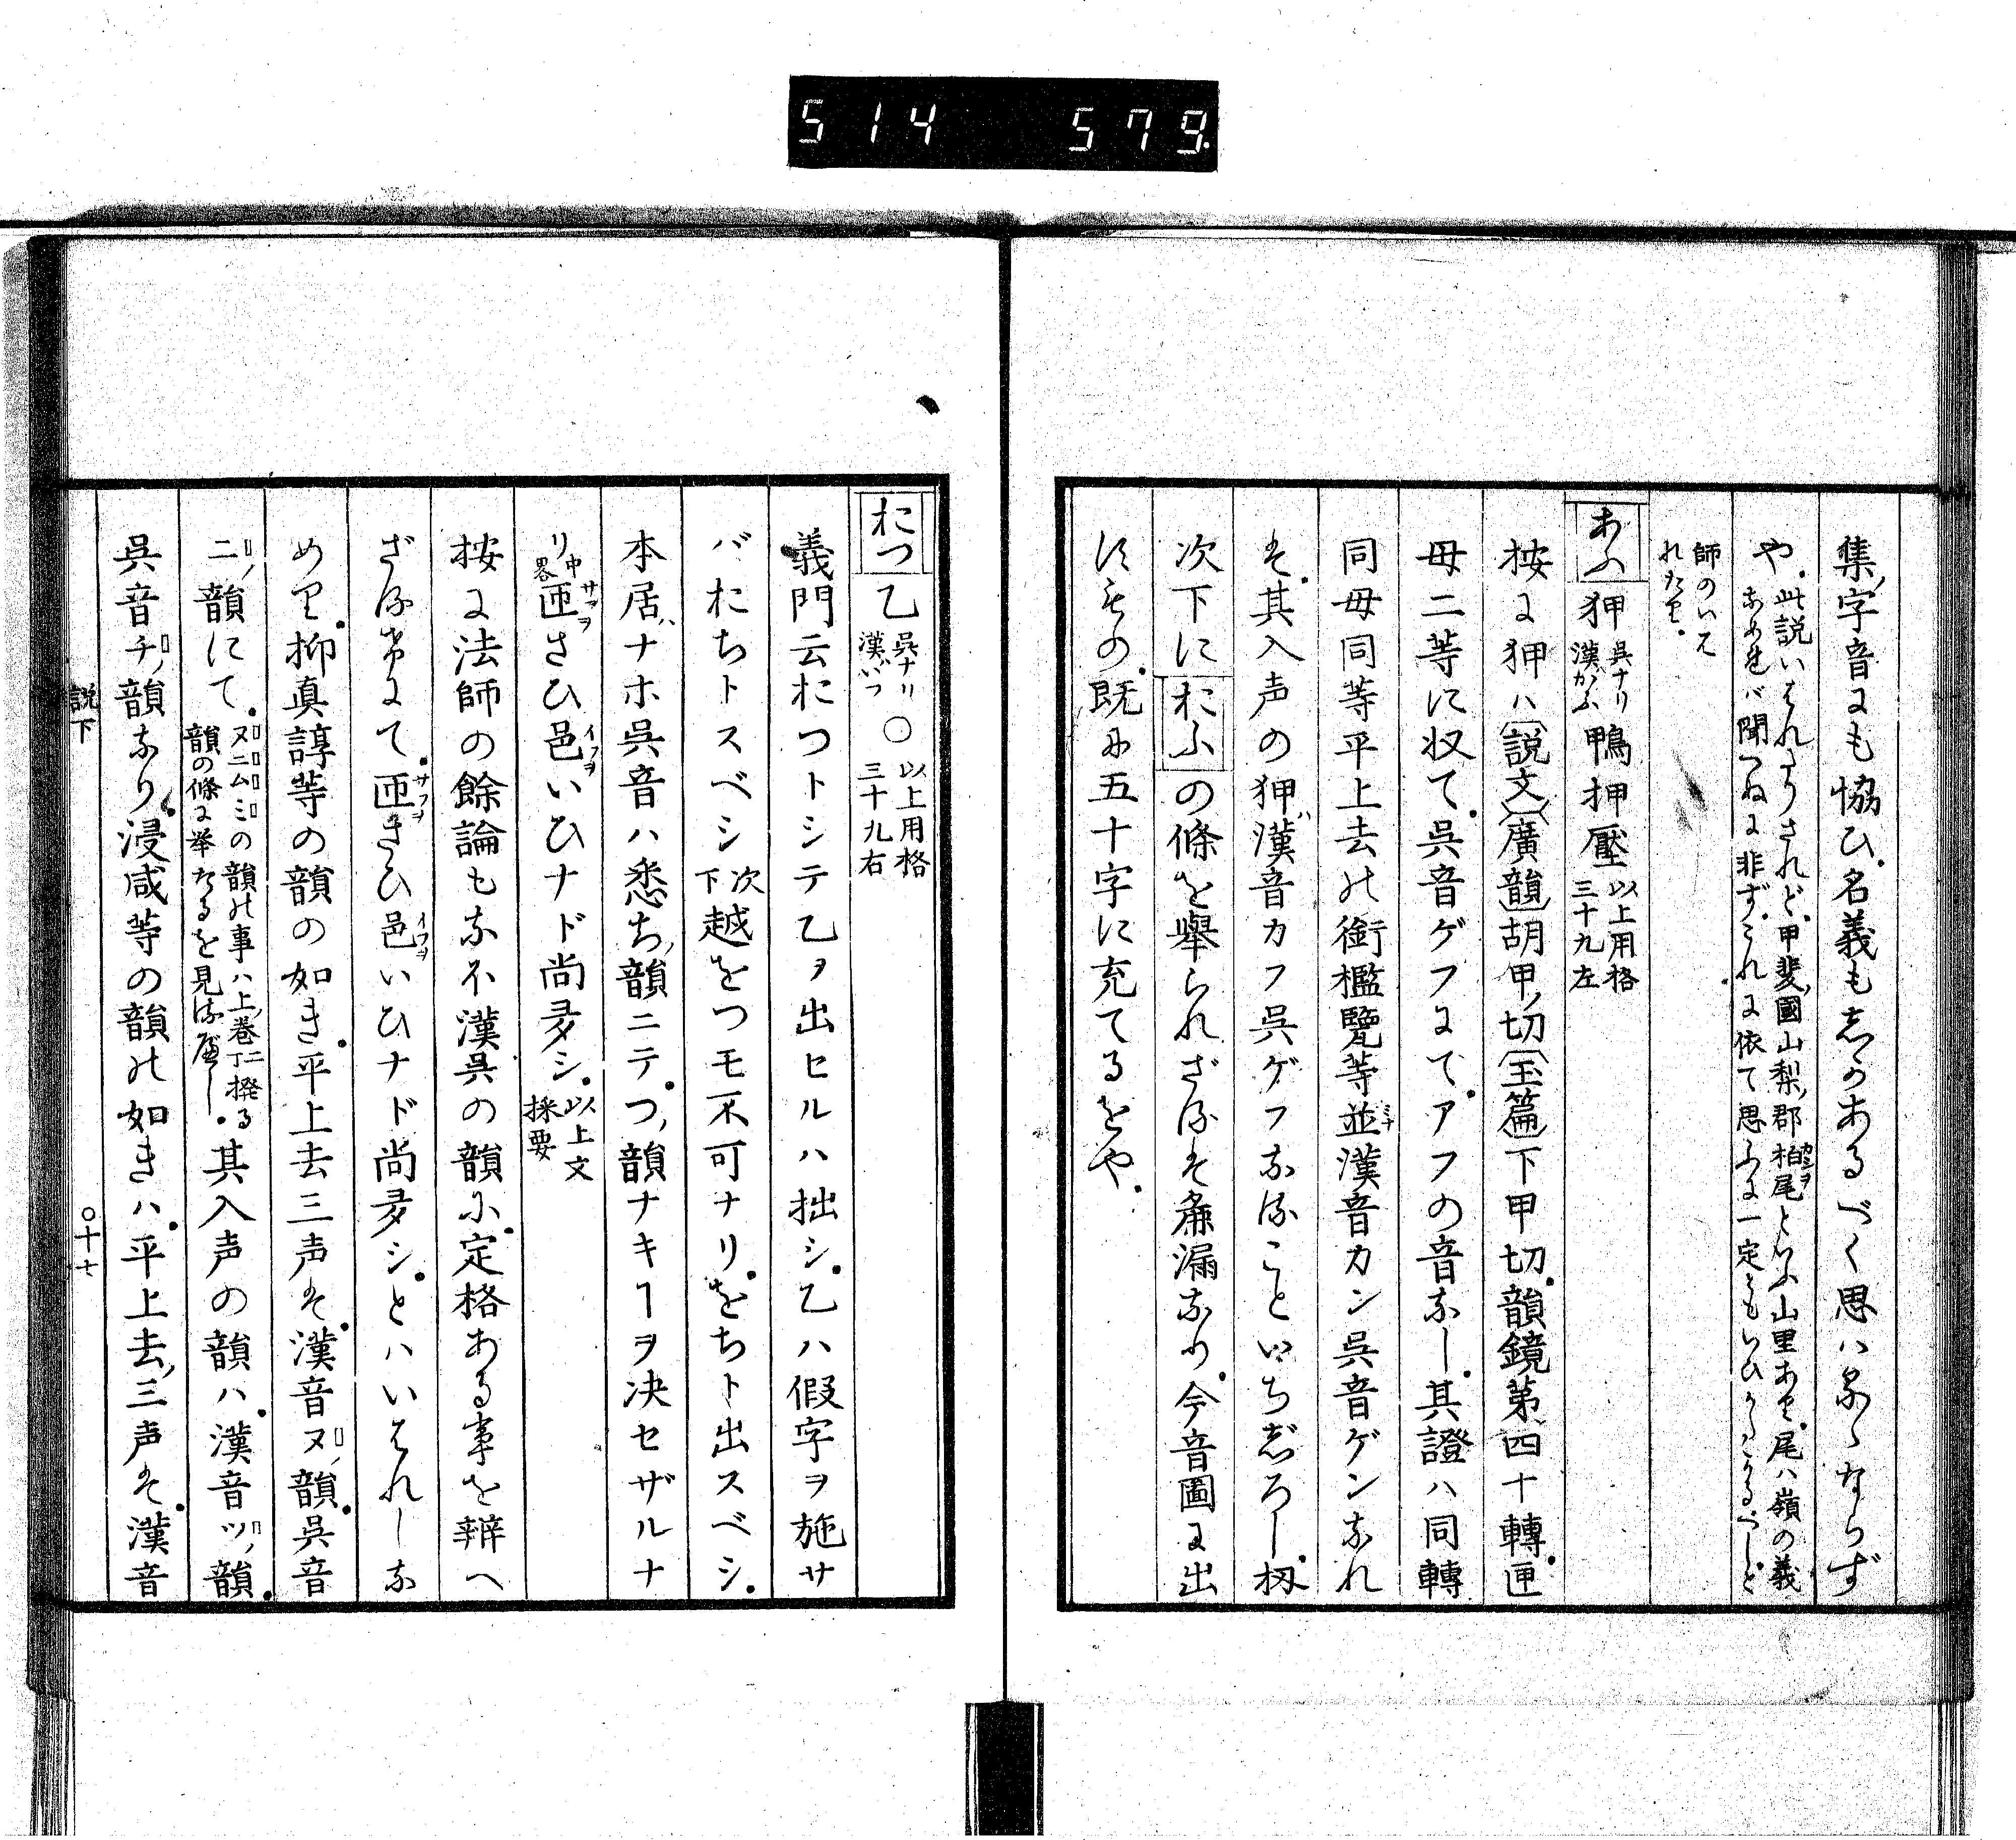 514 579.
集字音にも恊ひ名義も志かあるべく思ハるゝならず
や 此説いはれたりされど甲斐國山梨郡柏尾といふ山里あり尾ハ嶺の義
なめれバ聞つねに非ずこれに依て思ふに一定ともいひがたかるべしど
師のいは
れたり
あふ 狎 呉ナリ 漢がふ 鴨 押 壓 以上用格 三十九左
按に狎ハ説文廣韻胡甲切玉篇下甲切韻鏡第四十轉匣
母二等に収て呉音ゲフにてアフの音なし其證ハ同轉
同母同等平上去の銜檻覽等並漢音カン呉音ゲンなれ
ば其入声の狎漢音カフ呉ゲフなることいちじろし扨
次下におふの條を舉られざるは麁漏なり今音圖に出
にその既に五十字に充てるをや
おつ 乙 呉ナリ 漢いつ ○ 以上用格 三十九右
義門云おつトシテ乙ヲ出セルハ拙シ乙ハ假字ヲ施サ
バおちトスベシ 次下 越をつモ不可ナリをちト出スベシ
本居ナホ呉音ハ悉ち韻ニテつ韻ナキヿヲ决セザルナ
リ 中畧 匝さひ邑いひナド尚多シ 以上文 採要
按に法師の餘論もなほ漢呉の韻に定格ある事を辨へ
ざる説にて匝さひ邑いひナド尚多シとハいはれしな
めり抑真諄等の韻の如き平上去三声は漢音ヌ韻呉音
ニ韻にて ヌニムミの韻の事ハ上巻二丁撥る 韻の條に举たるを見るべし 其入声の韻ハ漢音ツ韻
呉音チ韻なり浸咸等の韻の如きハ平上去三声は漢音
説下 ○十七